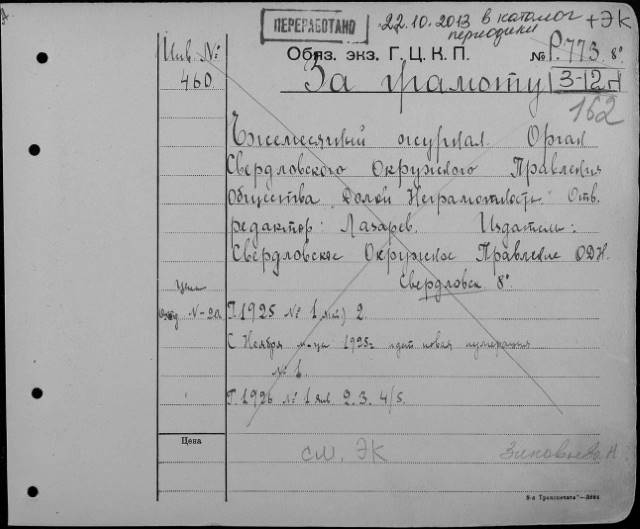 ПЕРЕРАБОТАНО 22.10.2013 в каталог + ЭК
периодики
Инв. №
460
Обяз. экз. Г.Ц.К.П. № Р.773. 8°
За грамоту 3-12
162
Ежемесячный журнал. Орган
Свердловского Окружного Правления
Общества "Долой Неграмотность". Отв.
редактор: Лазарев. Издатель:
Свердловское Окружное Правление ОДН.
Свердловск 8°
Цена
N-20 Г. 1925 № 1 2.
С Ноября м-ца 1925г идет новая нумерация
№ 1.
Г. 1926 № 1 янв 2. 3. 4/5.
Цена
см. ЭК Зиновьева Н